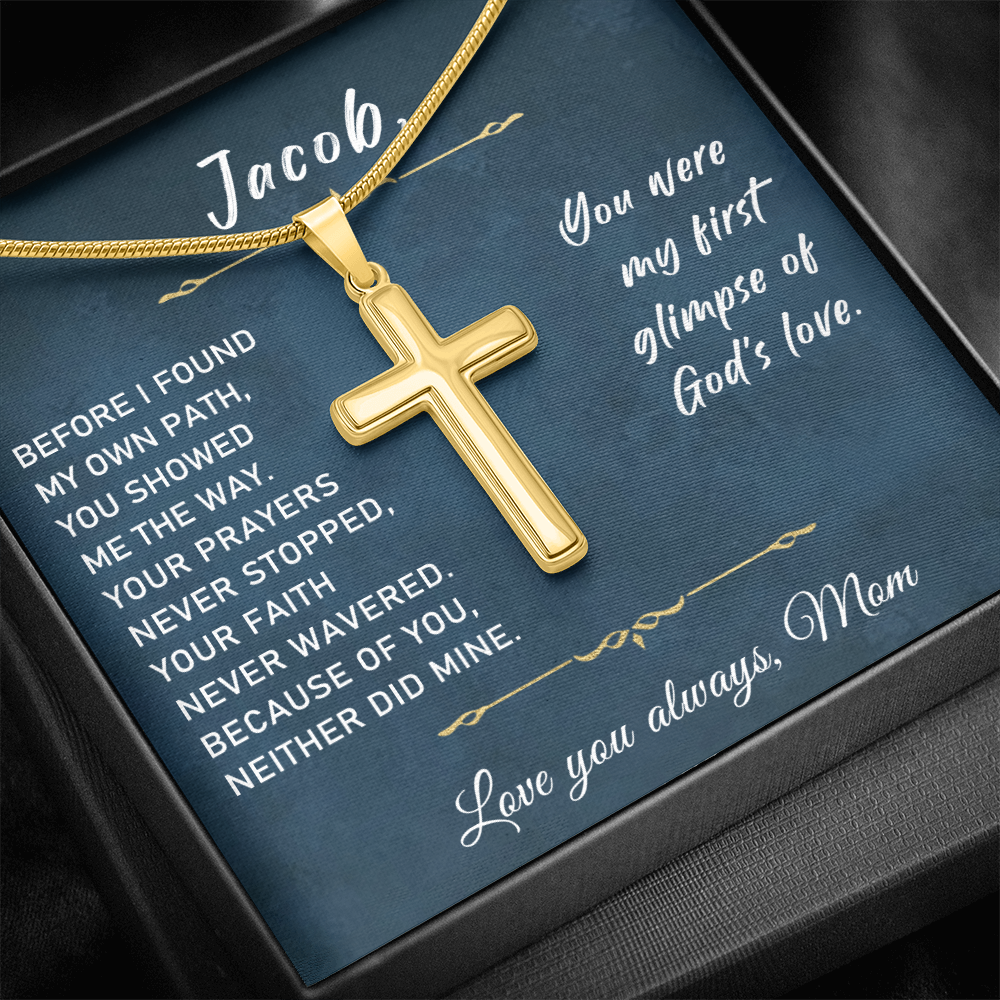 Jacob,
BEFORE I FOUND
MY OWN PATH,
YOU SHOWED
ME THE WAY.
YOUR PRAYERS
NEVER STOPPED,
YOUR FAITH
NEVER WAVERED.
BECAUSE OF YOU,
NEITHER DID MINE.
You were
my first
glimpse of
God's love.
Love you always, Mom